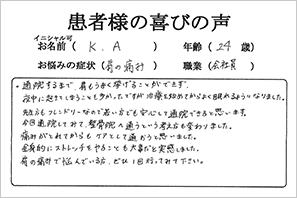 患者様の喜びの声
イニシャル可
お名前 ( K.A ) 年齢 ( 24 歳)
お悩みの症状 (肩の痛み) 職業 (会社員)
・通院するまで、肩もうまく挙げることができず、
夜中に起きてしまうことも多かったですが治療を始めてからよく眠れるようになりました。
先生方もフレンドリーなので若い方でも安心して通院できると思います。
今回通院してみて、整骨院へ通うという考え方も変わりました。
痛みがとれてからもケアとして通おうと思いました。
全身的にストレッチをやることも大事だと実感しました。
肩の痛みで悩んでいる方、ぜひ1回行ってみて下さい。